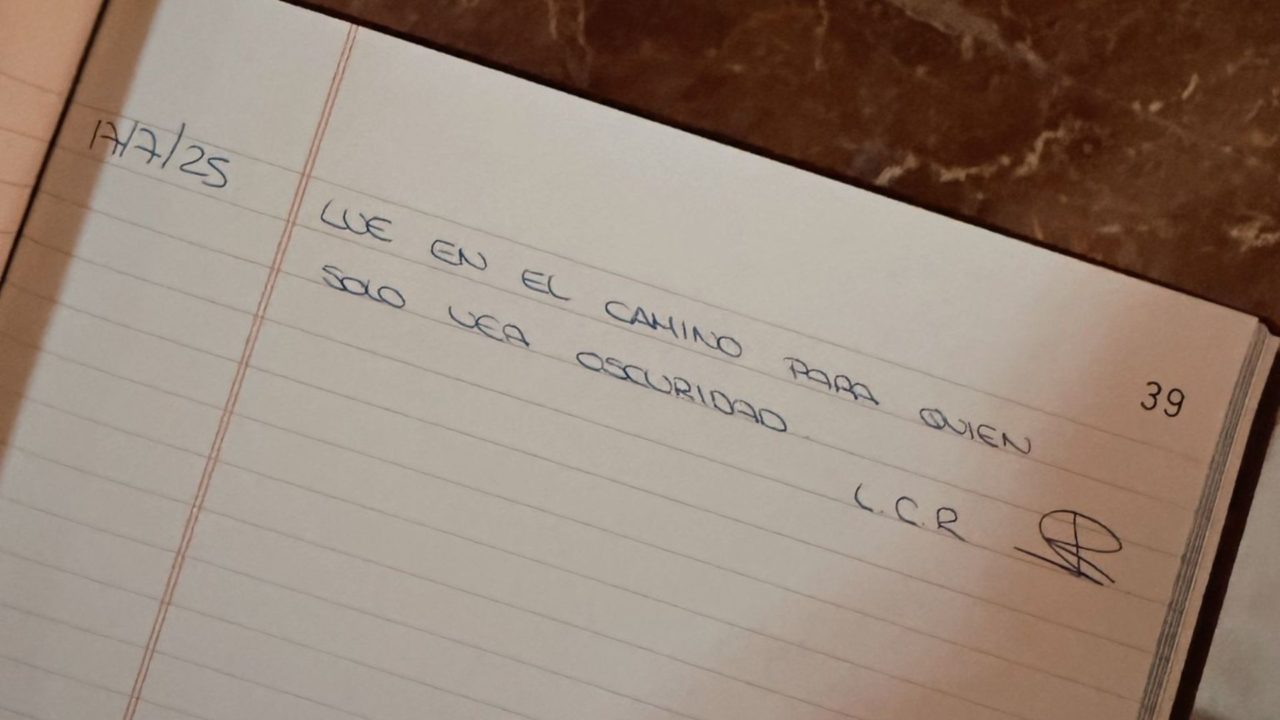 17/7/25
LUZ EN EL CAMINO PARA QUIEN
SOLO VEA OSCURIDAD
39
L.C.R